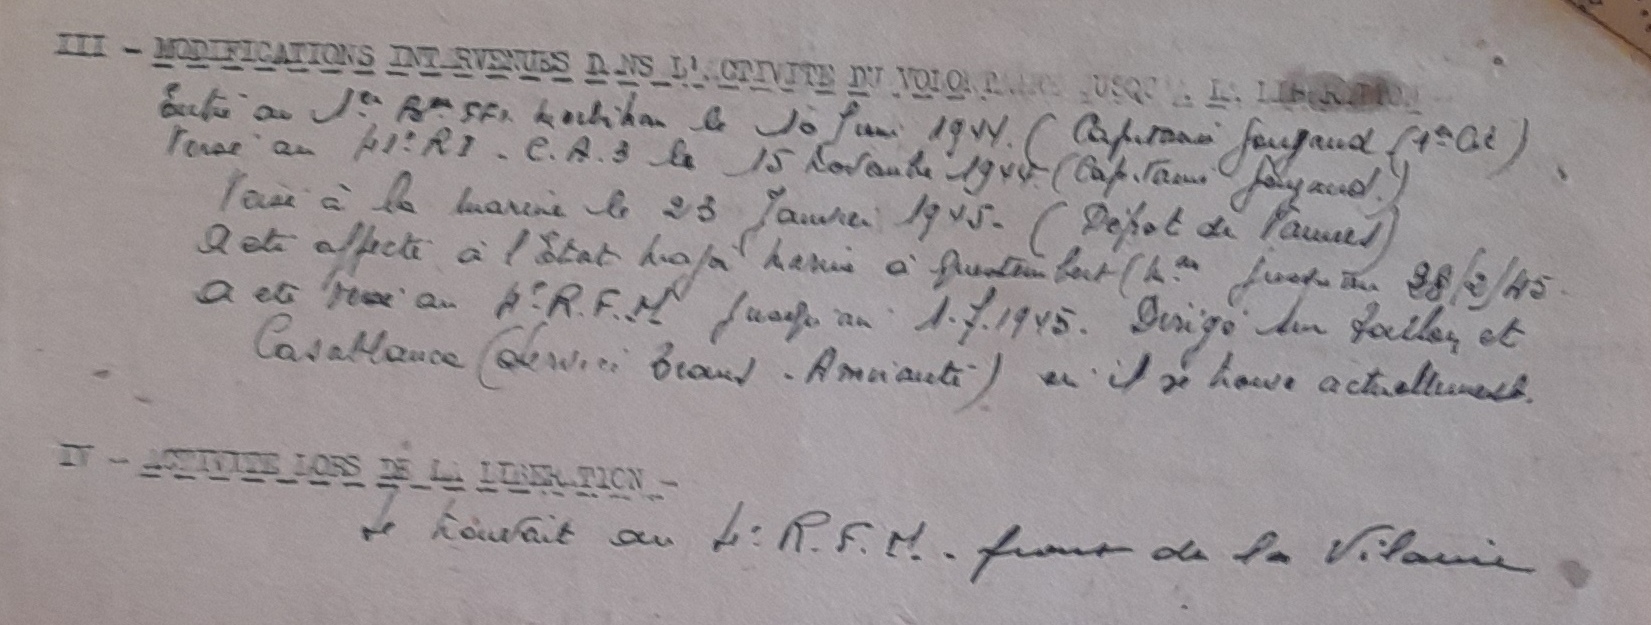 III - MODIFICATIONS INTERVENUES DANS L'ACTIVITE DU VOLONTAIRE JUSQU'A LA LIBERATION
Entré au 1er Bon FFI. Morbihan le 10 Juin 1944. ( Capitaine (1ère Cie)
Versé au 41e RI. C.A.3 le 15 Novembre 1944 (Capitaine
Versé à la marine le 23 Janvier 1945. ( Dépôt de Vannes)
A été affecté à l'Etat major marine à Questembert ( jusqu'au 28/2/45.
A été versé au 4e R.F.M jusqu'au 1.7.1945. Dirigé sur Toulon et
Casablanca (service - Amirauté) où il se trouve actuellement.
IV - ACTIVITE LORS DE LA LIBERATION -
Se trouvait au 4e R.F.M. front de la Vilaine